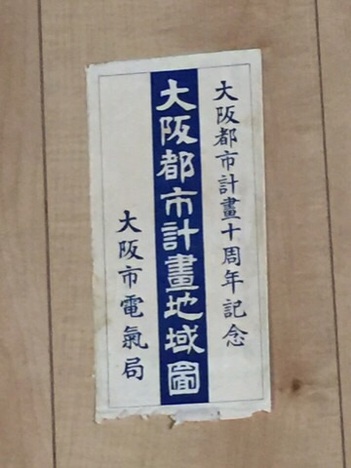 大阪都市計畫十周年記念
大阪都市計畫地域圖
大阪市電氣局